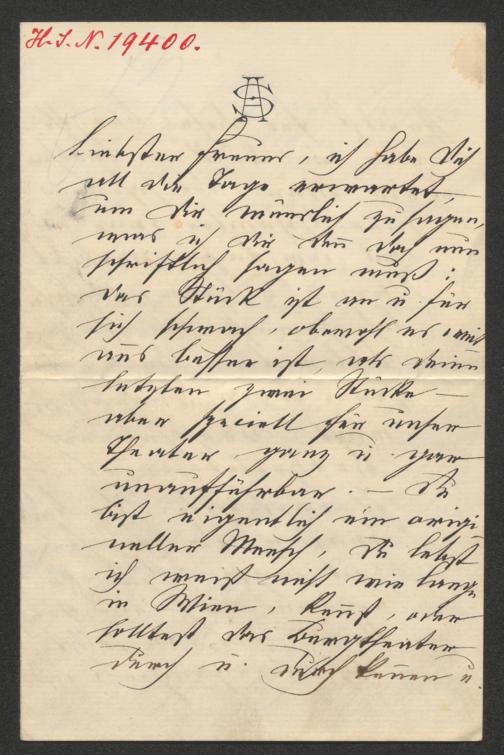 H.I.N. 19400.
AS
Liebster Freund, ich habe Dich
all die Tage erwartet,
um Dir mündlich zu sagen,
was ich Dir den doch nun
schriftlich sagen muß:
das Stück ist an u für
sich schwach, obwohl es
uns besser ist, als Deine
letzten zwei Stücke —
aber speciell für unser
Theater ganz u. gar
unaufführbar. — Du
bist eigentlich ein origi
neller Mensch, Du lebst
ich weiß nicht wie lange
in Wien, kennst, oder
solltest das Burgtheater
durch u. durch kennen u.